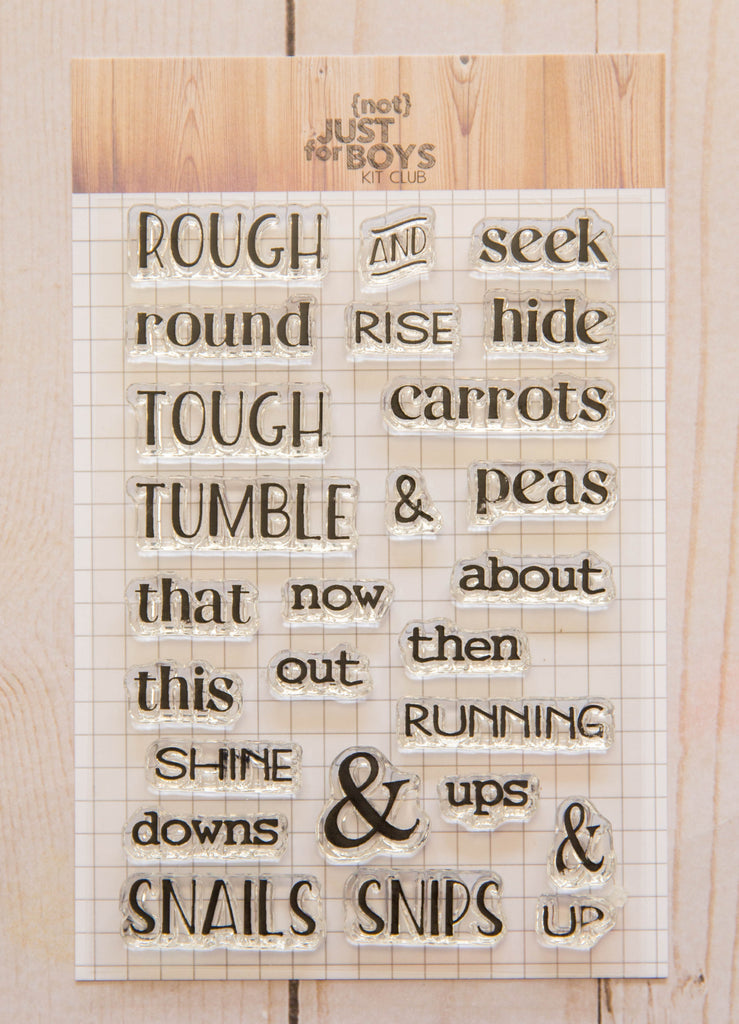 {not}
JUST
for BOYS
KIT CLUB
ROUGH AND seek
round RISE hide
TOUGH carrots
TUMBLE & peas
that now about
this out then
RUNNING
SHINE & ups
downs &
SNAILS SNIPS UP